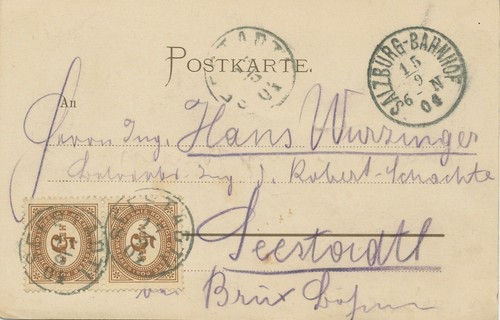 POSTKARTE.
SALZBURG-BAHNHOF
15
9
6-N
04
An
Herrn Ing. Hans Wurzinger
Ing d. Robert-Schachte
Seestadtl
bei Brüx Böhmen
5 5